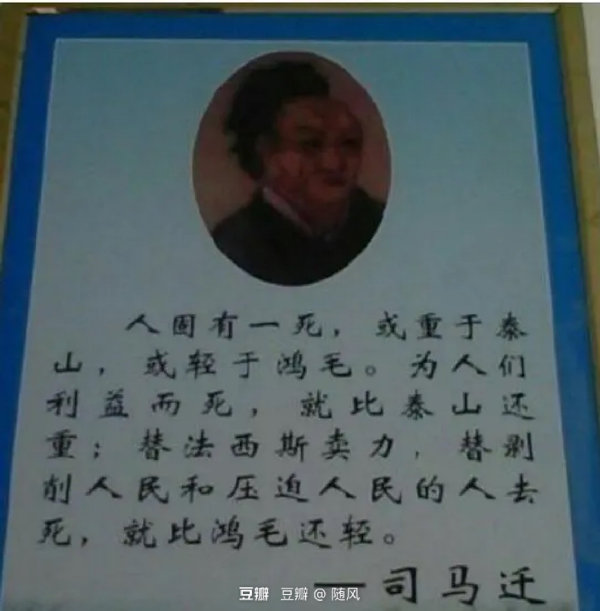 人固有一死，或重于秦
山，或轻于鸿毛。为人们
利益而死，就比秦山还
重；替法西斯卖力，替剥
削人民和压迫人民的人去
死，就比鸿毛还轻。
——司马迁
豆瓣 豆瓣@随风